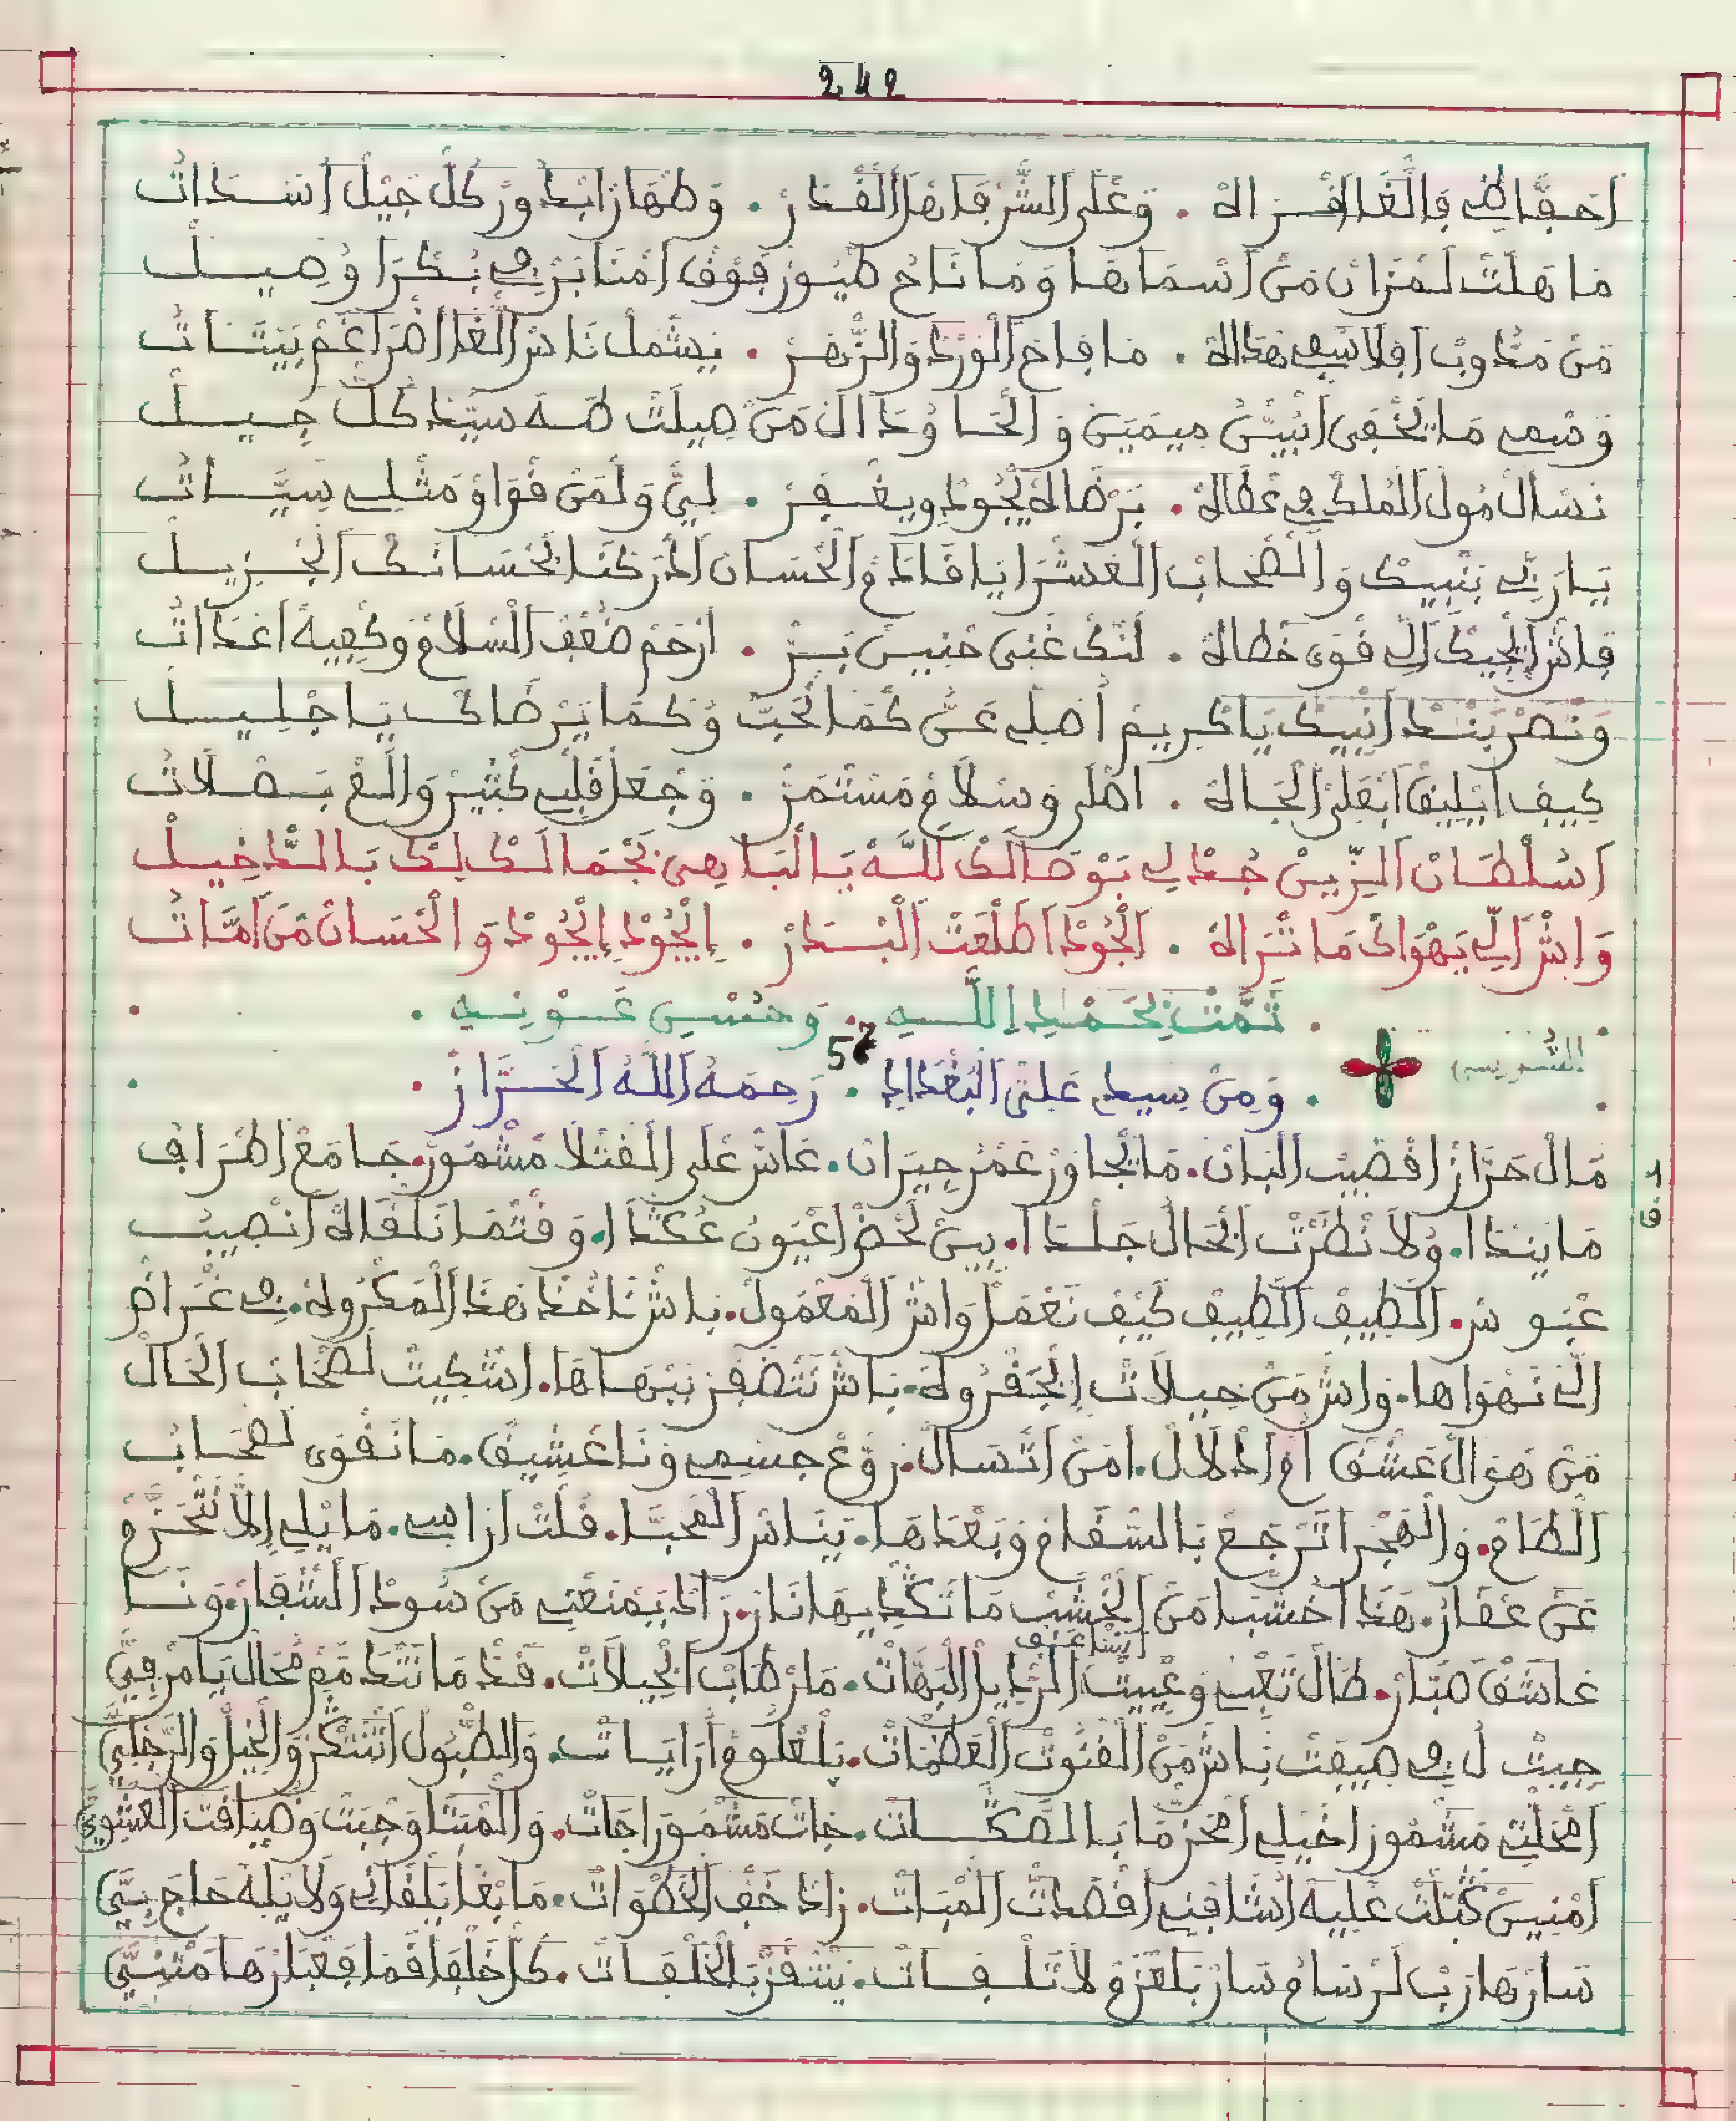 242
احفاظي فالغا افراه . وعلى الشرفا هل القدر . وطهار ابدور كل جيل اسدات
ما هلت لمزان من اسماها وما ناح طيور فوق امنابر في بكرا وصيل
من مدوب افلاسي هداه . ما فاح الورد والزهر . يشمل ناس الغا اضراغم بيتات
وسمي ما يخفى انبين ميمين و الحا ودال من صيلت طه سيد كل جيل
نسال مول الملك في عطاه . برضاه يجود ويغفر . لي ولمن قواو مثلي سيات
يا ربي بنبيك و الصحاب العشرا يا قادم الحسان ادركنا بحسانك الجزيل
فاش ايجيك الي قوى خطاه . لنك غني حنين بر . ارحم ضعف السلام وكفيه اعدات
ونصر بند انبيك يا كريم اصلي عني كما تحب وكما يرضاك يا جليل
كيف ايليق ابعلي الجاه . اصلى وسلام مستمر . وجعل قلبي كثير والع بصلات
اسلطان الزين جد لي بوصالك لله يا الباهي بجمالك ليك بالدخيل
واش الي يهواك ما تراه . الجود اطلعت البدر . الجود الجود والحسان من امات
. تمت بحمد الله . وحسن عونه .
57
. ومن سيدي علي البغدادي . رحمه الله الحراز .
مال حراز اقضيب البان . ما يجاور غمز جيران . عاس على القتلا مشمور . جامع اطراف
ما ينذا . ولا نظرت الحال جلدا . بين لحض اعيون عكدا . وقتما نلقاه انصيب
عبوس . الطيف الطيف كيف نعمل واش المعمول . باش ناخذ هذا المكروه . في غراض
الي نهواها . واش من حيلات الجفروه . باش نتضفر ببهاها . اشكيت لصحاب الحال
من هو العشق ام ادلال . امن اتسال . روع جسمي ونا عشيق . ما نقوى لصحاب
الطام . والهجر اترجع بالسقام وبعداها . يناس المحبا . قلت اراسي . ما يلي الا نتحزم
عن عقار . هذا اخشبا من الخشب ما تكديها نار . راد يمنعني من سود الشفار . ونا
عاشق صبار . طال تعبي وعييت الرايد البهات . مار طاب الحيلات . قد ما نتدمم محال يا مرفي
جيت ل في صيفت باش من القنوت العظمات . بلعلوم ارايات . والطبول اتنتكر والخيل والرجلي
امحلتي مشمور اخيلي امحزما بالصكات . جات مشمور اجات . والمبتا وجبت وضيافت العشوي
امنين كبلت عليه اشافني اقصدت المبات . زاد خف الخطوات . ما بغا يلقاني ولا يله حاج بي
سار هارب لرسام سار بلعزم لا تلفات . يتنقز بالخلفات . كل خلفا قما فعبارها متني